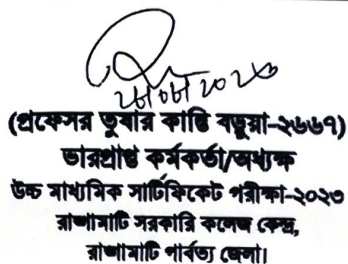 (প্রফেসর তুষার কান্তি বড়ুয়া-২৬৬৭)
ভারপ্রাপ্ত কর্মকর্তা/অধ্যক্ষ
উচ্চ মাধ্যমিক সার্টিফিকেট পরীক্ষা-২০২৩
রাঙ্গামাটি সরকারি কলেজ কেন্দ্র,
রাঙ্গামাটি পার্বত্য জেলা।